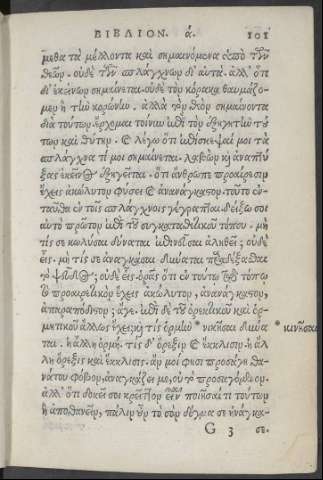 ΒΙΒΛΙΟΝ. ά. 101
μεθα τὰ μέλλοντα καὶ σημαινόμενα ὑπὸ τῶν
θεῶν. οὐδὲ τῶν σπλάγχνων δι' αὐτά. ἀλλ' ὅτι
δι' ἐκείνων σημαίνεται. οὐδὲ τὸν κόρακα θαυμάζο-
μεν ἢ τὴν κορώνην. ἀλλὰ τὸν θεὸν σημαίνοντα
διὰ τούτων. ἔρχομαι τοίνυν ἐπὶ τὸν ἐξηγητὴν τού-
των καὶ θύτην. καὶ λέγω ὅτι ἐπίσκεψαί μοι τὰ
σπλάγχνα τί μοι σημαίνεται. λαβὼν καὶ ἀναπτύ-
ξας ἐκεῖνος ἐξηγεῖται. ὅτι ἄνθρωπε προαίρεσιν
ἔχεις ἀκώλυτον φύσει καὶ ἀνανάγκαστον. τοῦτο ἐν-
ταῦθα ἐν τοῖς σπλάγχνοις γέγραπται. δείξω σοι
αὐτὸ πρῶτον ἐπὶ τοῦ συγκαταθετικοῦ τόπου. μή
τίς σε κωλῦσαι δύναται ἐπινεῦσαι ἀληθεῖ; οὐδὲ
εἷς. μή τίς σε ἀναγκάσαι δύναται παραδέξασθαι
τὸ ψεῦδος; οὐδὲ εἷς. ὁρᾷς ὅτι ἐν τούτῳ τῷ τόπῳ
τὸ προαιρετικὸν ἔχεις ἀκώλυτον, ἀνανάγκαστον,
ἀπαραπόδιστον; ἄγε. ἐπὶ δὲ τοῦ ὀρεκτικοῦ καὶ ὁρ-
μητικοῦ ἄλλως ἔχει; καὶ τίς ὁρμὴν * νικῆσαι δύνα- * κινῆσαι
ται. ἢ ἄλλη ὁρμή. τίς δ' ὄρεξιν καὶ ἔκκλισιν; ἢ ἄλ-
λη ὄρεξις καὶ ἔκκλισις. ἄν μοι φησι προσάγῃ θα-
νάτου φόβον, ἀναγκάζει με, οὐ τὸ προσαγόμενον.
ἀλλ' ὅτι δοκεῖ σοι κρεῖττον εἶναι ποιῆσαί τι τούτων
ἢ ἀποθανεῖν, πάλιν οὖν τὸ σὸν δόγμα σε ἠνάγκα-
G 3 σε.